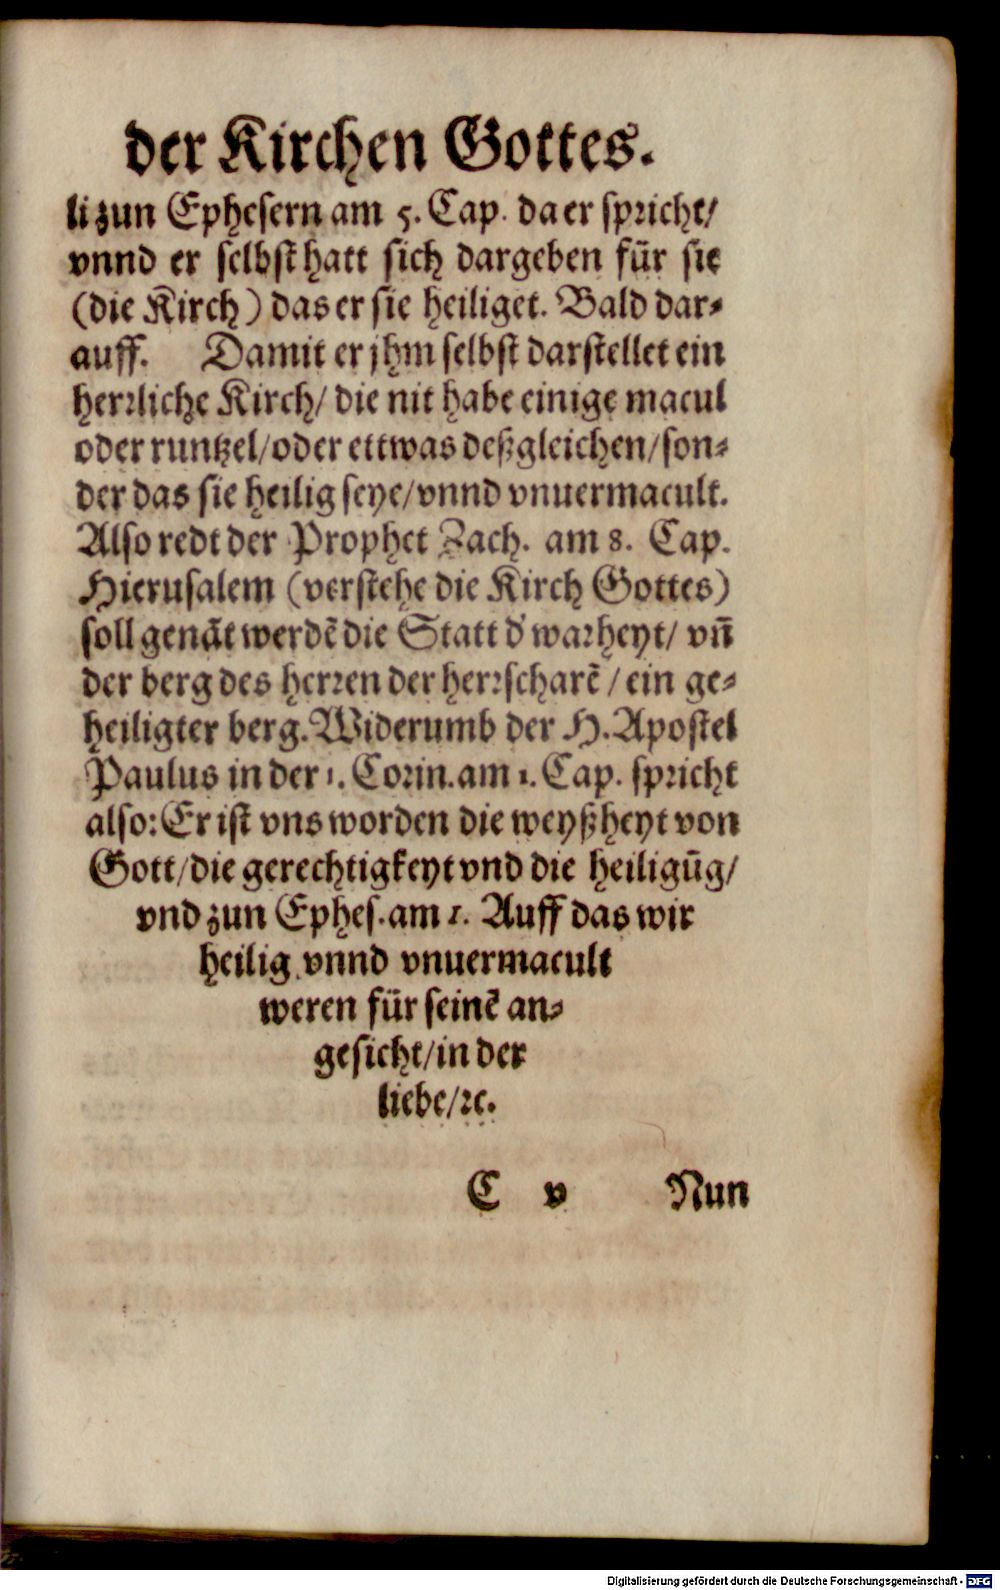 der Kirchen Gottes.
li zun Ephesern am 5. Cap. da er spricht/
vnnd er selbst hatt sich dargeben für sie
(die Kirch) das er sie heiliget. Bald dar⸗
auff. Damit er jhm selbst darstellet ein
herꝛliche Kirch/ die nit habe einige macul
oder runtzel/oder ettwas deßgleichen/son⸗
der das sie heilig seye/vnnd vnuermacult.
Also redt der Prophet Zach. am 8. Cap.
Hierusalem (verstehe die Kirch Gottes)
soll genãt werdẽ die Statt d' warheyt/ vñ
der berg des herꝛen der herꝛscharẽ / ein ge⸗
heiligter berg. Widerumb der H. Apostel
Paulus in der 1. Corin. am 1. Cap. spricht
also: Er ist vns worden die weyßheyt von
Gott/die gerechtigkeyt vnd die heiligũg/
vnd zun Ephes. am 1. Auff das wir
heilig vnnd vnuermacult
weren für seinẽ an⸗
gesicht/in der
liebe/ꝛc.
C v Nun
Digitalisierung gefördert durch die Deutsche Forschungsgemeinschaft - DFG